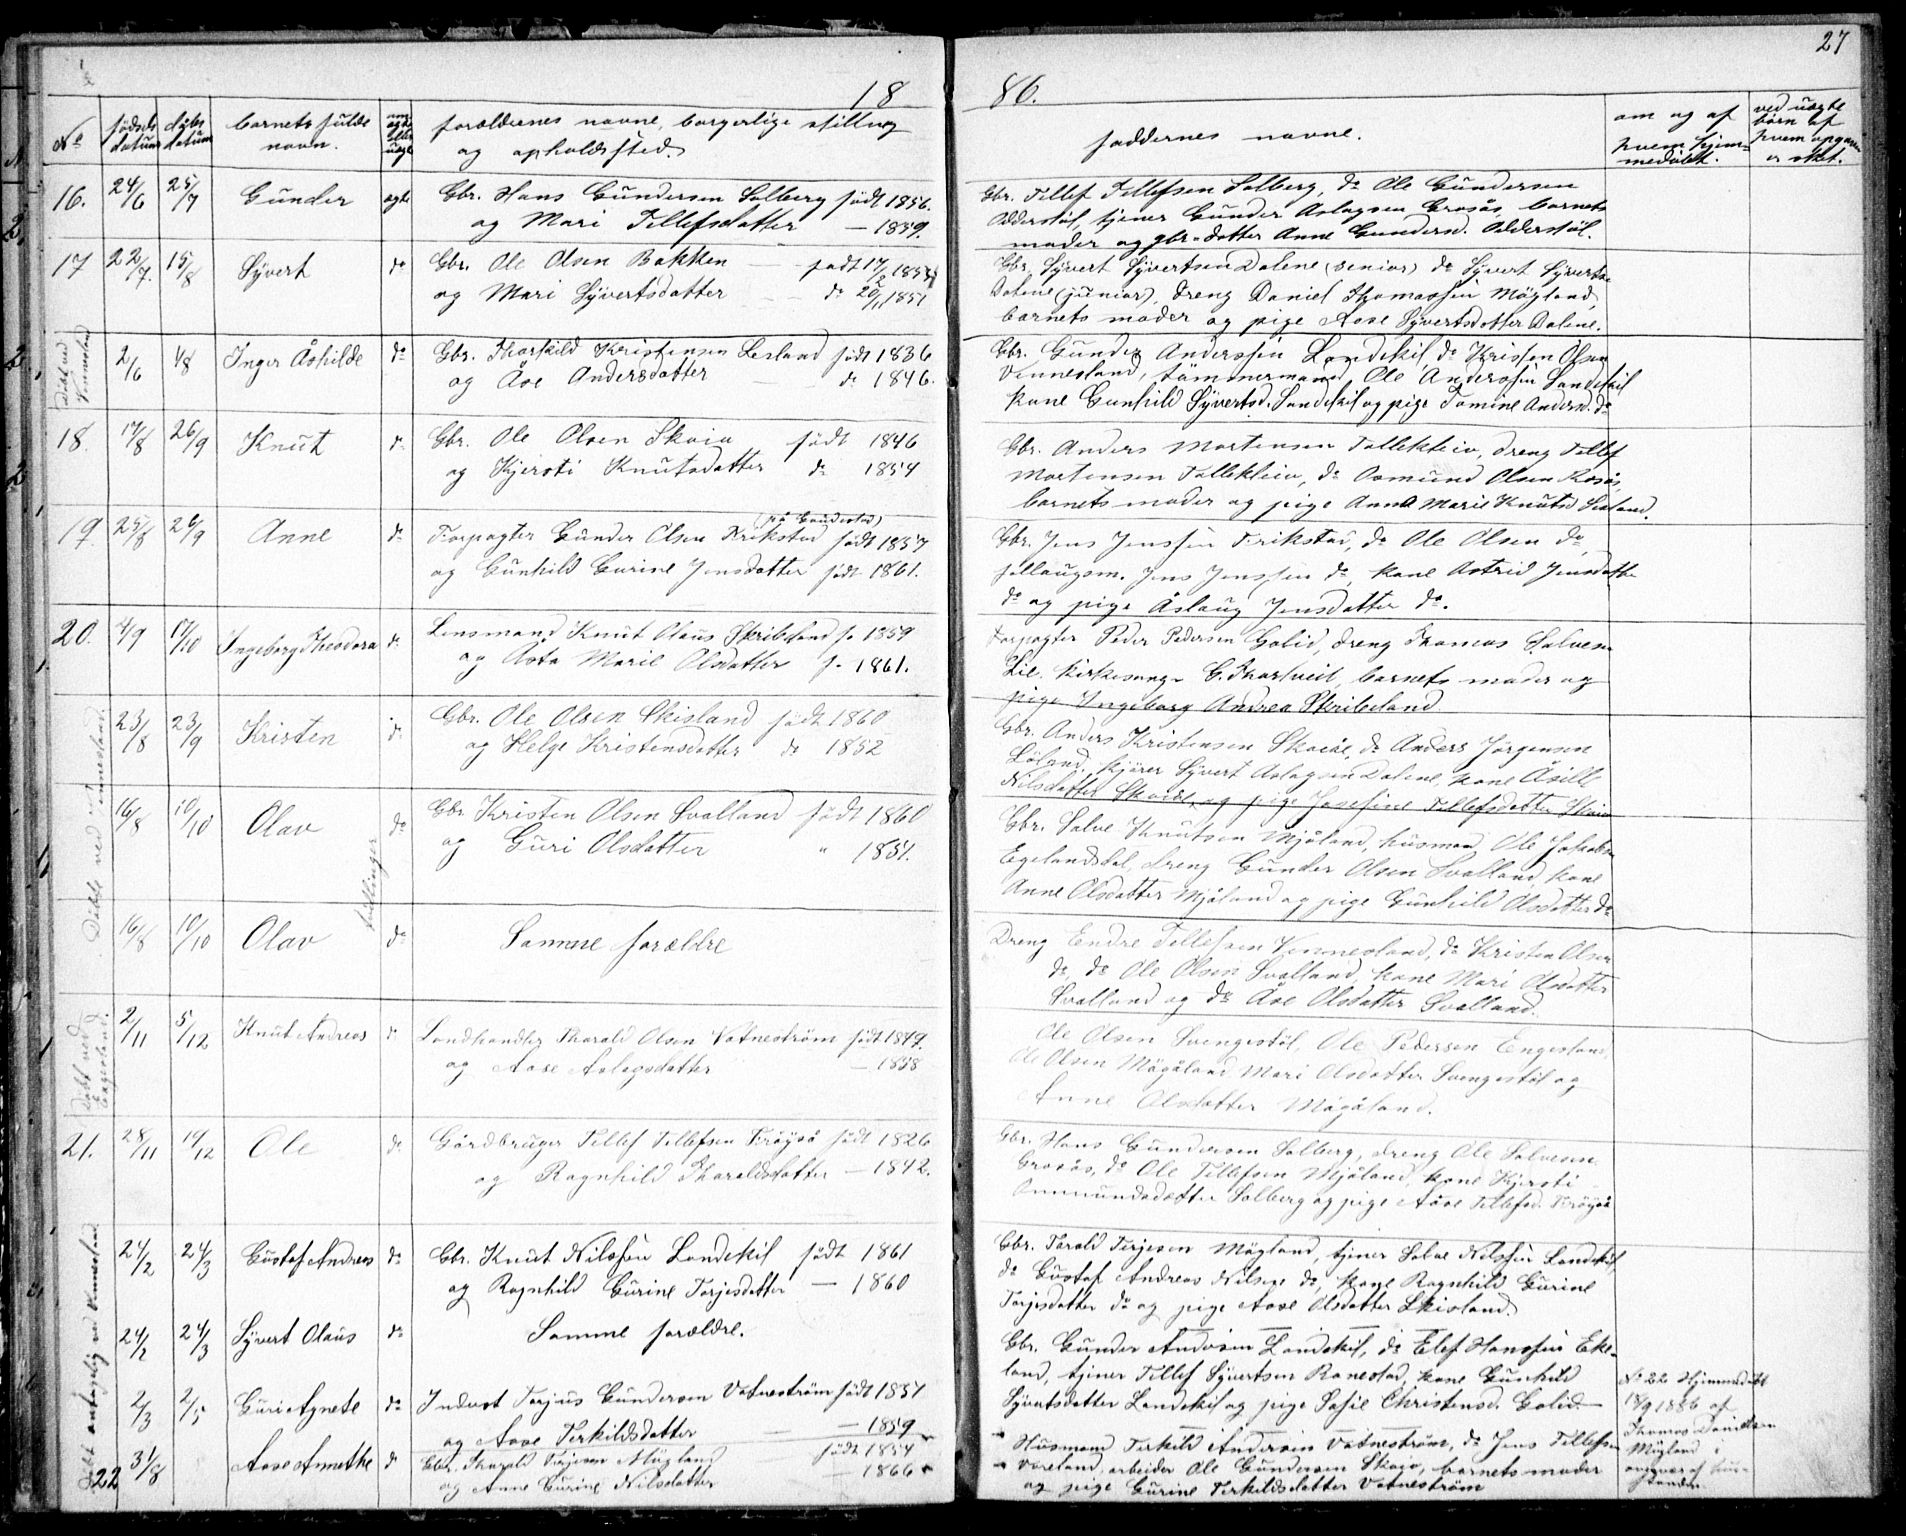 27
18 86.
No fødsels datum dåbs datum barnets fulde navn. forældrenes navne, borgerlige stilling og opholdssted. faddernes navne. om og af hvem hjemmedøbt. ved uægte børn af hvem opgaven er sket.
16. 24/6 25/7 Gunder ægte Gbr. Hans Gundersen Solberg født 1856.
og Mari Tellefsdatter — 1859.
Gbr. Tellef Tellefsen Solberg, do Ole Gundersen
Odderstøl, tjener Gunder Aslagsen Grosås, barnets
moder og gbr.datter Anne Gundersd. Odderstøl.
17 22/7. 15/8 Syvert do Gbr. Ole Olsen Bakken født 17/2 185
og Mari Syvertsdatter do 20/11 1851
Gbr. Syvert Syvertsen Dalene (senior) do Syvert Syvertsen
Dalene (junior), dreng Daniel Thomassen Mögland,
barnets moder og pige Aase Syvertsdatter Dalene.
Døbt ved Vennesland
2/6 1/8 Inger Åshilde do Gbr. Thorkild Kristensen Lesland født 1836
og Åse Andersdatter do 1846.
Gbr. Gunder Anderssen Landekil do Kristen Olsen
Vennesland, tømmermand Ole Anderssen Landekil
kone Gunhild Syvertsd. Landekil og pige Tomine Andersd. do
18. 17/8 26/9 Knut do Gbr. Ole Olsen Skaia født 1846
og Kjersti Knutsdatter do 1854
Gbr. Anders Mortensen Tollekleiv, dreng Tellef
Mortensen Tollekleiv, do Aamund Olsen
barnets moder og pige Anne Marie Knutsd
19. 25/8 26/9 Anne do Forpagter Gunder Olsen Frikstad født 1857
og Gunhild Gurine Jensdatter født 1861.
Gbr. Jens Jenssen Frikstad, do Ole Olsen do,
fellaugsm. Jens Jenssen do, kone Astrid Jensdatter
do og pige Åslaug Jensdatter do.
20. 4/9 17/10 Ingeborg Theodora do Lensmand Knut Olaus Skribeland f. 1859
og Åsta Marie Olsdatter f. 1861.
Forpagter Peder Pedersen Golid, dreng Thomas Salvesen
Lie, kirkesanger G. Thortveit, barnets moder og
pige Ingeborg Andrea Skribeland
Døbte ved Vennesland
23/8 23/9 Kristen do Gbr. Ole Olsen Skisland født 1860
og Helge Kristensdatter do 1852
Gbr. Anders Kristensen Skaiå, do Anders Jörgensen
Löland, kjører Syvert Aslagsen Dalene, kone Åsille
Nilsdatter Skaiå, og pige Josefine Tellefsdatter Skaiå
16/8 10/10 Olav do Gbr Kristen Olsen Svalland født 1860
og Guri Olsdatter " 1851.
tvillinger
Gbr. Salve Knutsen Mjåland, husmand Ole Jakobsen
Egelandsdal, dreng Gunder Olsen Svalland, kone
Anne Olsdatter Mjåland og pige Gunhild Olsdatter do
16/8 10/10 Olav do Samme forældre
Dreng Endre Tellefsen Vennesland, do Kristen Olsen
do, do Ole Olsen Svalland, kone Mari Olsdatter
Svalland og do Åse Olsdatter Svalland.
Døbt ved Egeland.
2/11 5/12 Knut Andreas do Landhandler Tharald Olsen Vatneström født 1849.
og Aase Aslagsdatter — 1858
Ole Olsen Svengestöl, Ole Pedersen Engesland,
Ole Olsen Mögåland, Mari Olsdatter Svengestöl og
Anne Olsdatter Mögåland.
21. 28/11 19/12 Ole do Gårdbruger Tellef Tellefsen Fröyså født 1826
og Ragnhild Tharaldsdatter — 1842.
Gbr. Hans Gundersen Solberg, dreng Ole Salvesen
Grosås, do Ole Tellefsen Mjåland, kone Kjersti
Aanmundsdatter Solberg og pige Aase Tellefsd. Fröyså
Døbt antagelig ved Vennesland
24/2 24/3 Gustaf Andreas do Gbr. Knut Nilssen Landekil født 1861
og Ragnhild Gurine Torjesdatter — 1860
Gbr. Tarald Terjesen Mögland, tjener Salve Nilssen Landekil,
do Gustaf Andreas Nilsen do, kone Ragnhild Gurine
Torjesdatter do og pige Aase Olsdatter Skisland.
24/2 24/3 Syvert Olaus do Samme forældre.
Gbr. Gunder Andersen Landekil, do Elef Hanssen Eke-
land, tjener Tellef Syvertsen Ranestad, kone Gunhild
Syvertsdatter Landekil og pige Sofie Christensd. Golid
2/3 2/5 Guri Agnete do Indust Torjus Gundersen Vatneström født 1851
og Aase Terkildsdatter — 1859
Husmand Terkild Andersen Vatneström, do Jens Tellefsen
Væreland, arbeider Ole Gundersen Skaiå, barnets moder
og pige Gurine Terkildsdatter Vatneström
22 31/8 Aase Anethe do Gbr. Tharald Terjesen Mögland født 1854
og Anne Gurine Nilsdatter 1866
No 22 Hjemmedøbt
18/9 1886 af
Thomas Danielsen
Mögland i